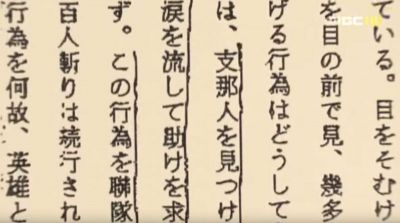 ている。目をそむけ
を目の前で見、幾多
げる行為はどうして
は、支那人を見つけ
涙を流して助けを求
ず。この行為を聯隊
百人斬りは続行され
行為を何故、英雄と